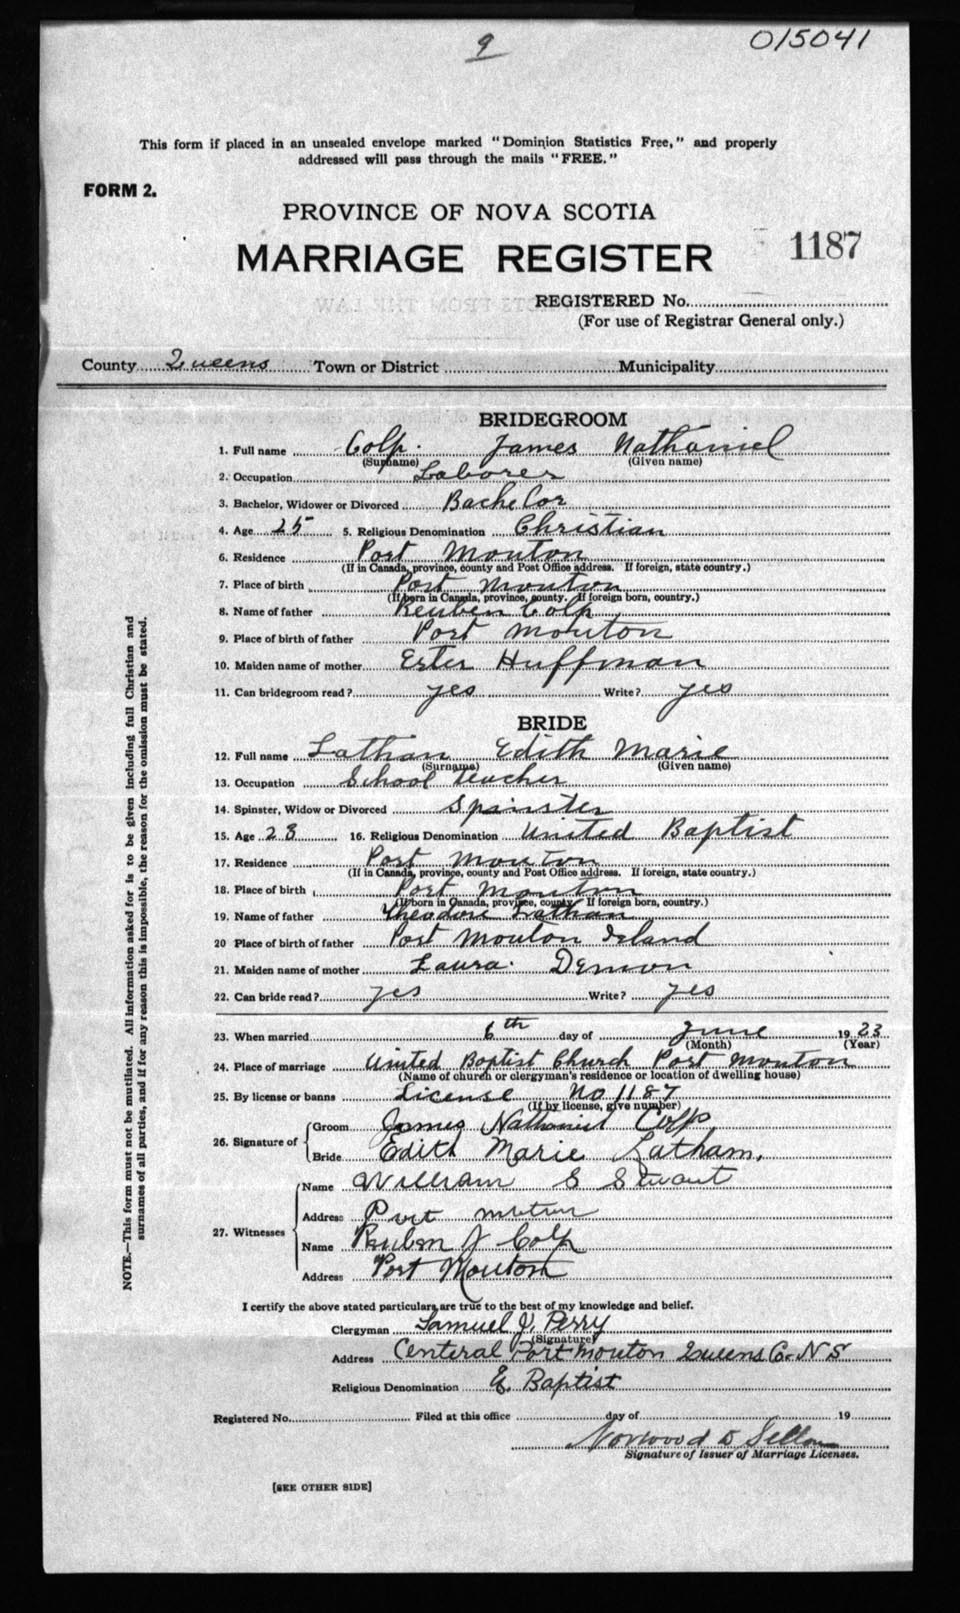 9
015041
This form if placed in an unsealed envelope marked "Dominion Statistics Free," and properly
addressed will pass through the mails "FREE."
FORM 2.
PROVINCE OF NOVA SCOTIA
MARRIAGE REGISTER 1187
REGISTERED No.
(For use of Registrar General only.)
County Queens Town or District Municipality
BRIDEGROOM
1. Full name Colp. James Nathaniel
(Surname) (Given name)
2. Occupation Laborer
3. Bachelor, Widower or Divorced Bachelor
4. Age 25 5. Religious Denomination Christian
6. Residence Port Mouton
(If in Canada, province, county and Post Office address. If foreign, state country.)
7. Place of birth Port Mouton
(If born in Canada, province, county. If foreign born, country.)
8. Name of father Reuben Colp
9. Place of birth of father Port Mouton
10. Maiden name of mother Ester Huffman
11. Can bridegroom read? yes Write? yes
BRIDE
12. Full name Lathan Edith Marie
(Surname) (Given name)
13. Occupation School teacher
14. Spinster, Widow or Divorced Spinster
15. Age 23 16. Religious Denomination United Baptist
17. Residence Port Mouton
(If in Canada, province, county and Post Office address. If foreign, state country.)
18. Place of birth Port Mouton
(If born in Canada, province, county. If foreign born, country.)
19. Name of father Theodore Lathan
20 Place of birth of father Port Mouton Island
21. Maiden name of mother Laura. Demon
22. Can bride read? yes Write? yes
23. When married 6th day of June 1923
(Month) (Year)
24. Place of marriage United Baptist Church Port Mouton
(Name of church or clergyman's residence or location of dwelling house)
25. By license or banns License No. 1187
(If by license, give number)
26. Signature of Groom James Nathaniel Colp
Bride Edith Marie Latham.
27. Witnesses Name William S Stewart
Address Port Mouton
Name Reuben J Colp
Address Port Mouton
I certify the above stated particulars are true to the best of my knowledge and belief.
Clergyman Samuel J. Perry
(Signature)
Address Central Port Mouton Queens Co. N S
Religious Denomination Baptist
Registered No. Filed at this office day of 19
Norwood
Signature of Issuer of Marriage Licenses.
[SEE OTHER SIDE]
NOTE.—This form must not be mutilated. All information asked for is to be given including full Christian and
surnames of all parties, and if for any reason this is impossible, the reason for the omission must be stated.